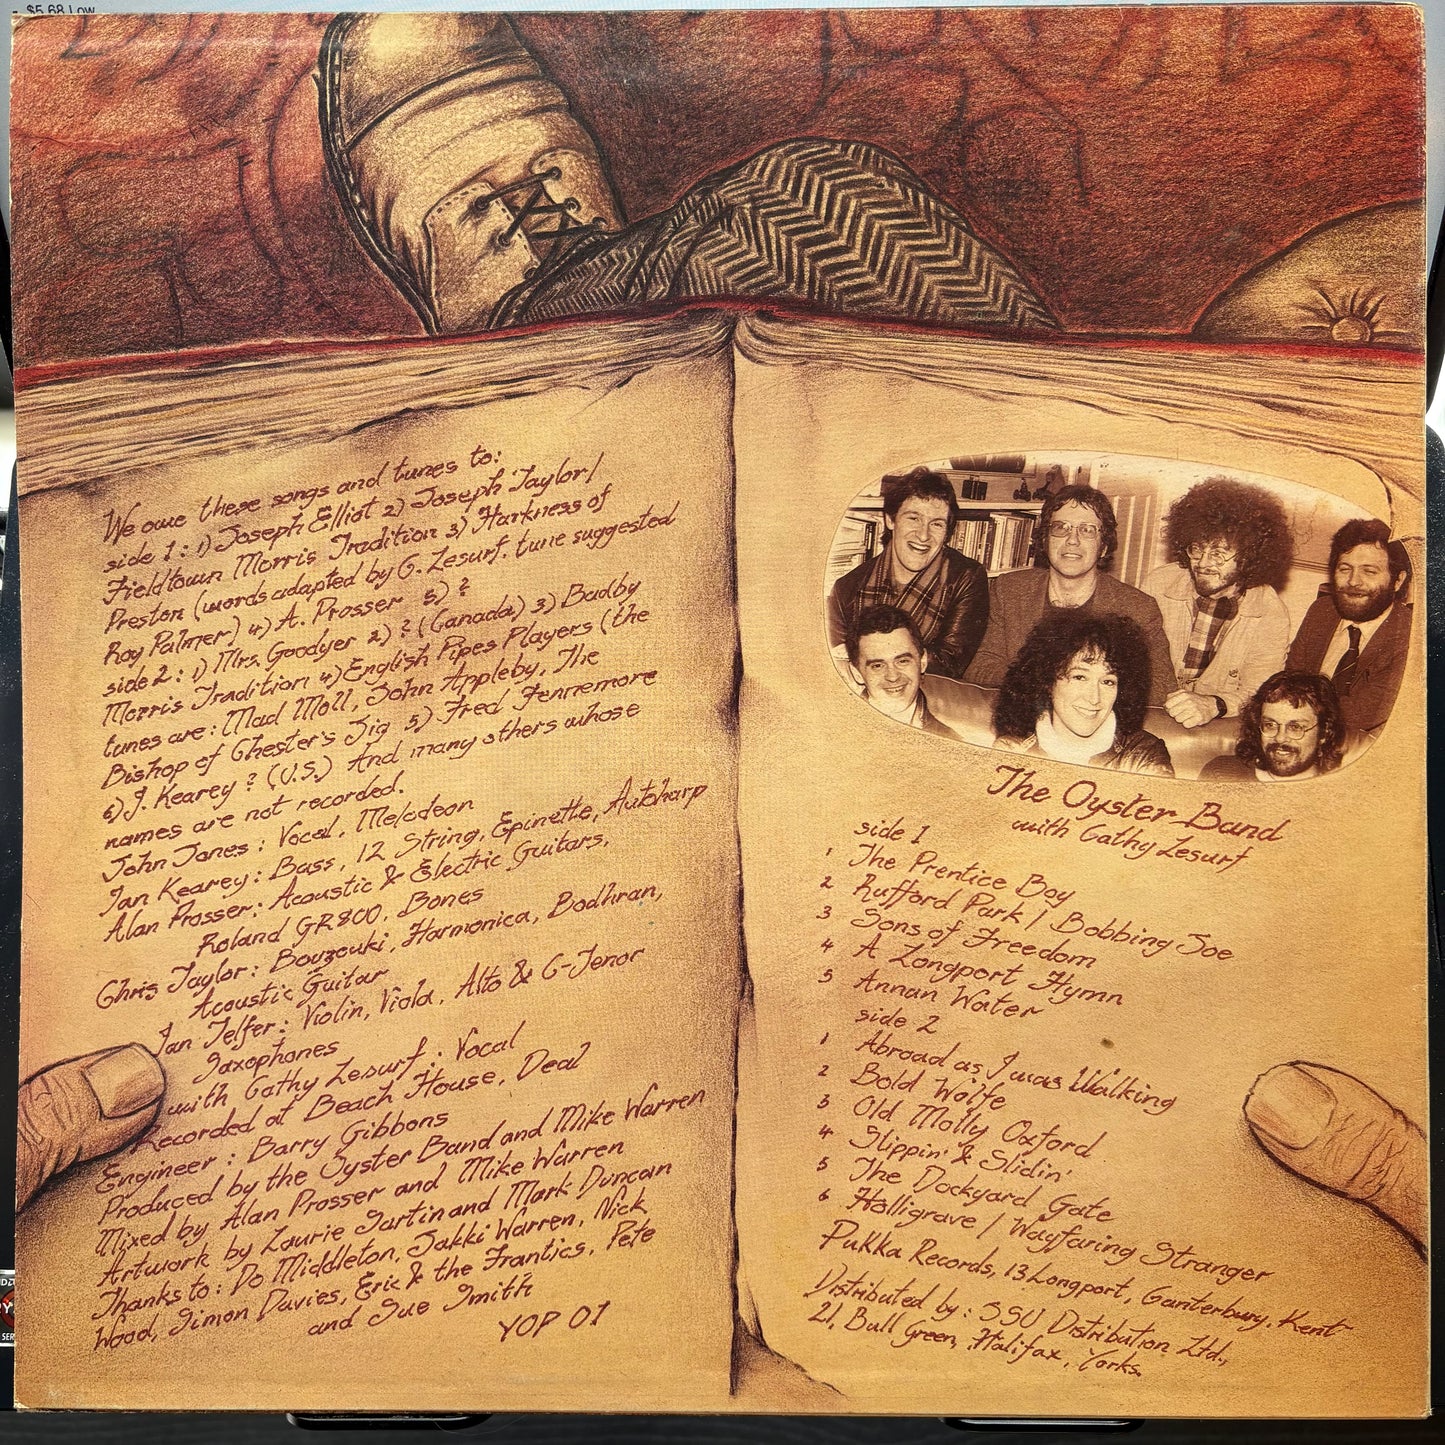 $5.68 Low
We owe these songs and tunes to:
side 1: 1) Joseph Elliot 2) Joseph Taylor/
Fieldtown Morris Tradition 3) Harkness of
Preston (words adapted by C. Lesurf, tune suggested
Roy Palmer) 4) A. Prosser 5) ?
side 2: 1) Mrs. Goodyer 2) ? (Canada) 3) Badby
Morris Tradition 4) English Pipes Players (the
tunes are: Mad Moll, John Appleby, The
Bishop of Chester's Jig 5) Fred Fennemore
6) J. Kearey ? (U.S.) And many others whose
names are not recorded.
John Jones: Vocal, Melodeon
Ian Kearey: Bass, 12 String, Epinette, Autoharp
Alan Prosser: Acoustic & Electric Guitars,
Roland GR800, Bones
Chris Taylor: Bouzouki, Harmonica, Bodhran,
Acoustic Guitar
Ian Telfer: Violin, Viola, Alto & C-Tenor
Saxophones
with Cathy Lesurf: Vocal
Recorded at Beach House, Deal
Engineer: Barry Gibbons
Produced by the Oyster Band and Mike Warren
Mixed by Alan Prosser and Mike Warren
Artwork by Laurie Sartin and Mark Duncan
Thanks to: Do Middleton, Jakki Warren, Nick
Wood, Simon Davies, Eric & the Frantics, Pete
and Sue Smith
YOP 01
The Oyster Band
with Cathy Lesurf
side 1
1 The Prentice Boy
2 Rufford Park / Bobbing Joe
3 Sons of Freedom
4 A Longport Hymn
5 Annan Water
side 2
1 Abroad as I was Walking
2 Bold Wolfe
3 Old Molly Oxford
4 Slippin' & Slidin'
5 The Dockyard Gate
6 Halligrave / Wayfaring Stranger
Pukka Records, 13 Longport, Canterbury, Kent
Distributed by: SSU Distribution Ltd.,
21, Bull Green, Halifax, Yorks.